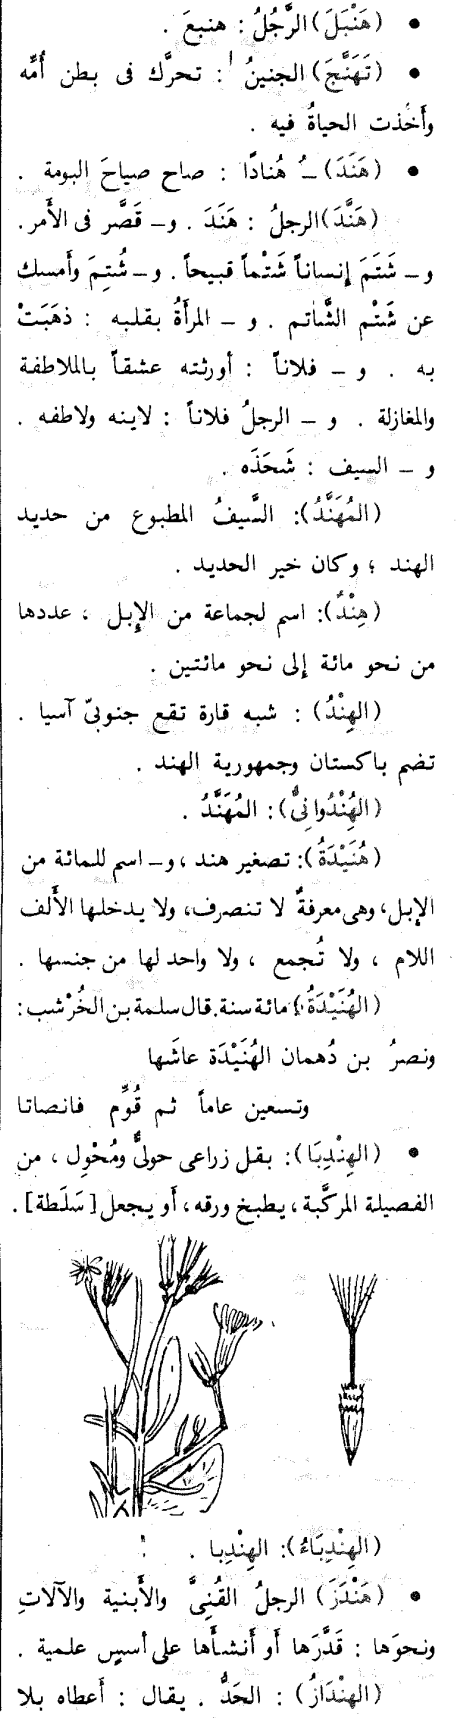 • (هَنْبَلَ) الرَّجُلُ : هنبعَ .
• (تَهَنَّجَ) الجنينُ : تحرَّك فى بطن أُمِّه
وأَخذت الحياةُ فيه .
• (هَنَدَ) ـُ هُنادًا : صاح صياحَ البومة .
(هَنَّدَ) الرجلُ : هَنَدَ . و– قَصَّر فى الأَمر.
و – شَتَمَ إِنساناً شَتْماً قبيحاً . و – شُتِمَ وأَمسك
عن شَتْم الشَّاتم . و – المرأَةُ بقلبه : ذهَبَتْ
به . و – فلاناً : أورثته عشقاً بالملاطفة
والمغازلة . و – الرجلُ فلاناً : لاينه ولاطفه .
و – السيف : شَحَذَه .
(المُهَنَّدُ): السَّيفُ المطبوع من حديد
الهند ؛ وكان خير الحديد .
(هِنْدٌ): اسم لجماعة من الإِبل ، عددها
من نحو مائة إِلى نحو مائتين .
(الهِنْدُ) : شبه قارة تقع جنوبىّ آسيا .
تضم باكستان وجمهورية الهند .
(الهُِنْدُوانىُّ): المُهَنَّدُ .
(هُنَيْدَةُ): تصغير هند ، و– اسم للمائة من
الإبل، وهى معرفةٌ لا تنصرف، ولا يدخلها الأَلف
اللام ، ولا تُجمع ، ولا واحد لها من جنسها .
(الهُنَيْدَةُ): مائة سنة. قال سلمة بن الخُرْشب:
ونصرُ بن دُهمان الهُنَيْدَة عاشَها
وتسعين عاماً ثم قُوِّم فانصاتا
• (الهِنْدِبَا): بقل زراعى حولىٌّ ومُحْوِل ، من
الفصيلة المركَّبة ، يطبخ ورقه، أَو يجعل [سَلَطة] .
(الهِنْدِبَاءُ): الهِنْدِبا .
• (هَنْدَزَ) الرجلُ القُنِىَّ والأَبنية والآلاتِ
ونحوَها : قَدَّرَها أَو أَنشأَها على أسسٍ علمية .
(الهِنْدَازُ) : الحَدُّ . يقال : أَعطاه بلا